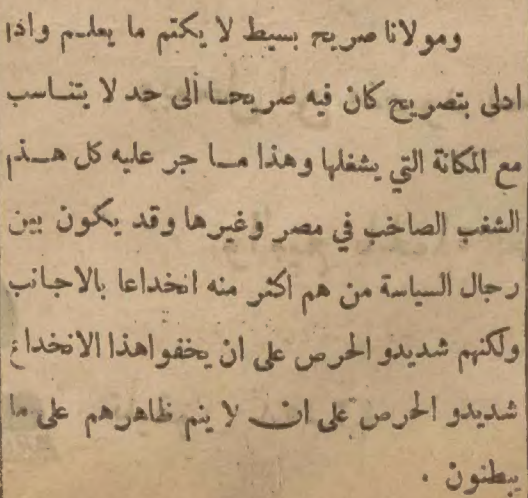 ومولانا صريح بسيط لا يكتم ما يعلم واذا
ادلى بتصريح كان فيه صريحا ألى حد لا يتناسب
مع المكانة التي يشغلها وهذا ما جر عليه كل هذه
الشغب الصاخب في مصر وغيرها وقد يكون بين
رجال السياسة من هم اكثر منه انخداعا بالاجانب
ولكنهم شديدو الحرص على ان يخفوا هذا الانخداع
شديدو الحرص على ان لا ينم ظاهرهم على ما
يبطنون .